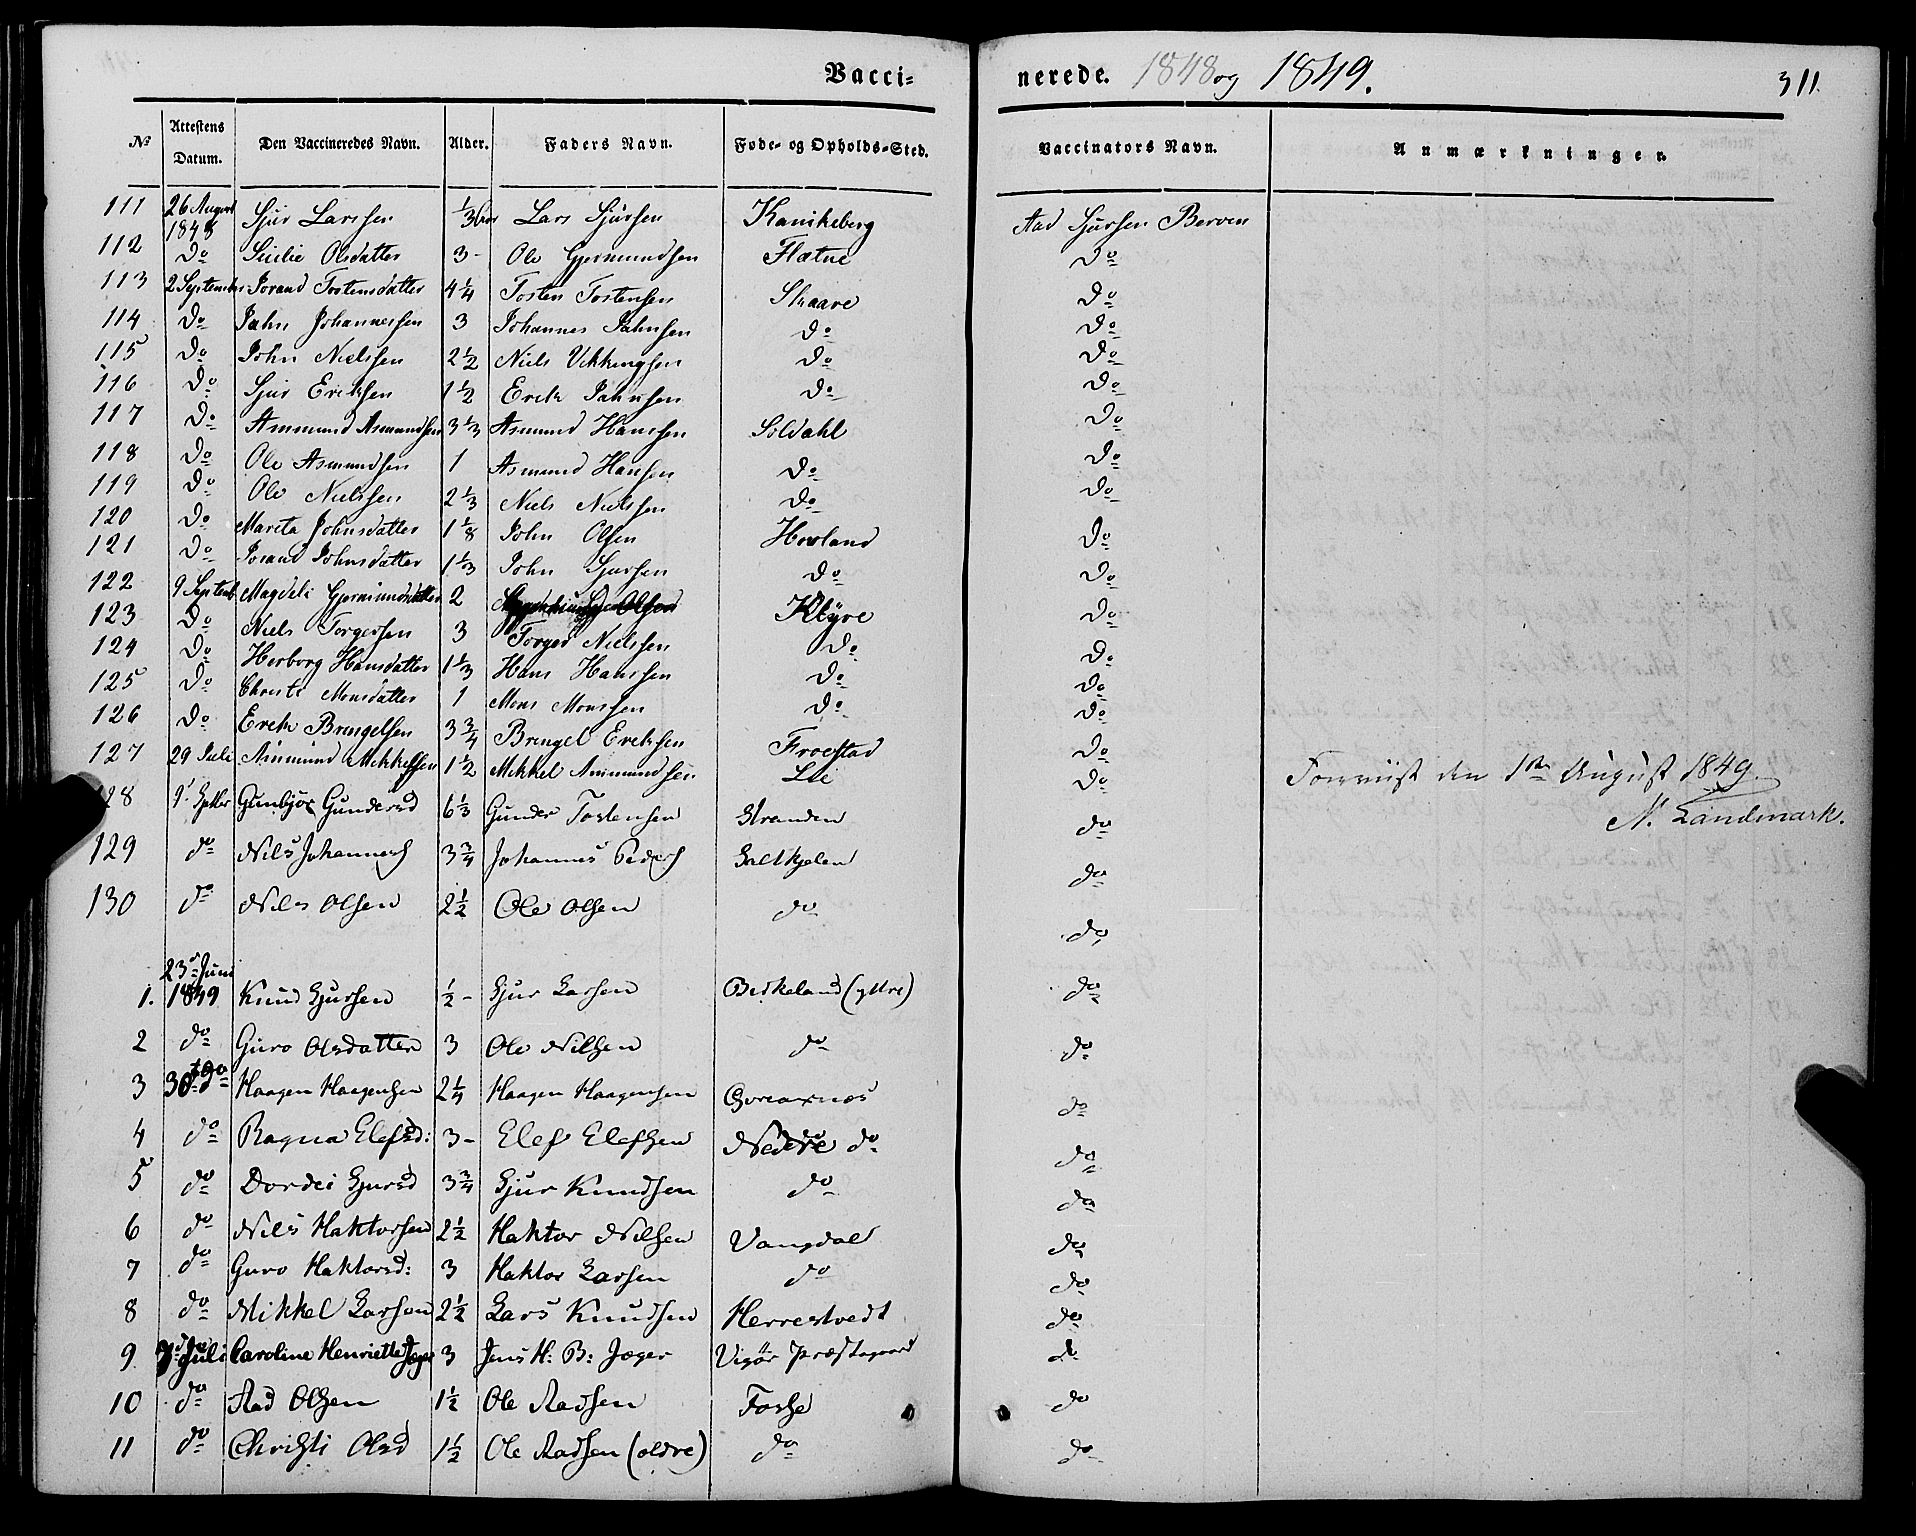 Vacci= nerede. 1848 og 1849. 311.
№ Attestens Datum. Den Vaccineredes Navn. Alder. Faders Navn. Føde- og Opholds-Sted. Vaccinators Navn. Anmærkninger.
111 26 August 1848 Sjur Larssen 1/3 Lars Sjursen Kanikeberg Aad Sjursen Berven
112 Do Sicilie Olsdatter 3 - Ole Gjermundsen Flatne Do
113 2 September Jorand Tostensdatter 4 1/4 Tosten Tostensen Skaare Do
114 Do Jahn Johannessen 3 Johannes Jahnsen Do Do
115 Do John Nielssen 2 1/2 Niels Vikkingsen Do Do
116 Do Sjur Eriksen 1 1/2 Erik Jahnsen Do Do
117 Do Ammund Asmundsen 3 1/3 Asmund Hanssen Soldahl Do
118 Do Ole Asmundsen 1 Asmund Hansen Do Do
119 Do Ole Nielssen 2 1/3 Niels Nielssen Do Do
120 Do Marita Johnsdatter 1 1/8 John Olsen Do
121 Do Jorand Johnsdatter 1 1/3 John Sjursen Do Do
122 9 Septemb Magdeli Gjermundsdatter 2 Olsen Klyve Do
123 Do Niels Torgersen 3 Torger Nielssen Do Do
124 Do Herborg Hansdatter 1 1/3 Hans Hanssen Do Do
125 Do Christi Monsdatter 1 Mons Monssen Do Do
126 Do Erik Bringelsen 3 3/4 Bringel Eriksen Froestad Do
127 29 Juli Ammund Mikkelsen 1 1/2 Mikkel Ammundsen Lie Do Foreviist den 1ste August 1849.
N. Landmark.
128 9 Septbr Gunbjor Gundersd 6 1/3 Gunder Tostensen Stranden do
129 do Nils Johanness 3 3/4 Johannes Peders Saltkjelen do
130 do Nils Olsen 2 1/2 Ole Olsen do do
1. 23d Juni 1849 Knud Sjursen 1/2 - Sjur Larsen Birkeland (yttre) do
2 do Guro Olsdatter 3 Ole Nilsen do do
3 30 do Haagen Haagensen 2 1/4 Haagen Haagensen do
4 do Ragna Elefsd: 3 - Elef Elefsen Nedre do do
5 do Dordei Sjursd 3 3/4 Sjur Knudsen do do
6 do Nils Haktorsen 2 1/2 Haktor Nilsen Vangdal do
7 do Guro Haktorsd: 3 Haktor Larsen do do
8 do Mikkel Larsen 2 1/2 Lars Knudsen Herrestvedt do
9 7d Juli Caroline Henriette Jæger 3 Jens H: B: Jæger Vigør Præstegaard do
10 do Aad Olsen 1 1/2 Ole Aadsen Fosse do
11 do Christi Olsd 1 1/2 Ole Aadsen (oldre) do do